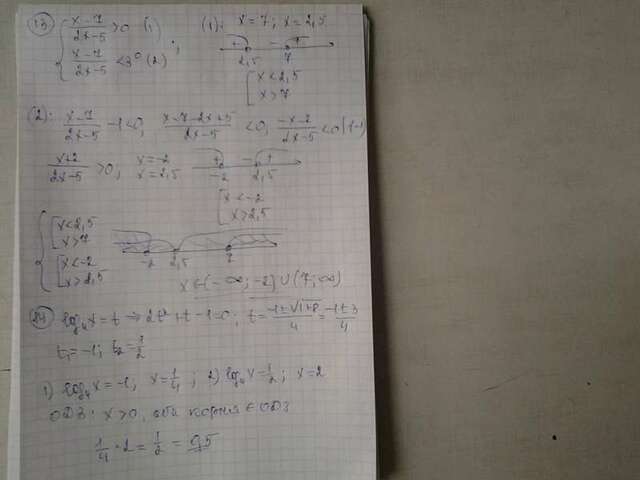 13) { (x-7)/(2x-5) > 0 (1) ; (1): x = 7; x = 2,5
(x-7)/(2x-5) < 3⁰ (2)
+ - +
2,5 7
[ x < 2,5
x > 7
(2): (x-7)/(2x-5) - 1 < 0, (x-7-2x+5)/(2x-5) < 0; (-x-2)/(2x-5) < 0 |(-1)
(x+2)/(2x-5) > 0; x = -2 + - +
x = 2,5 -2 2,5
[ x < -2
x > 2,5
{ [ x < 2,5
x > 7
[ x < -2 -2 2,5 7
x > 2,5 x ∈ (-∞; -2) ∪ (7; ∞)
log₄x = t → 2t² + t - 1 = 0; t = (-1±√1+8)/4 = (-1±3)/4
t₁ = -1; t₂ = 1/2
1) log₄x = -1, x = 1/4; 2) log₄x = 1/2; x = 2
ОДЗ: x > 0, оба корня ∈ ОДЗ
1/4 · 2 = 1/2 = 0,5